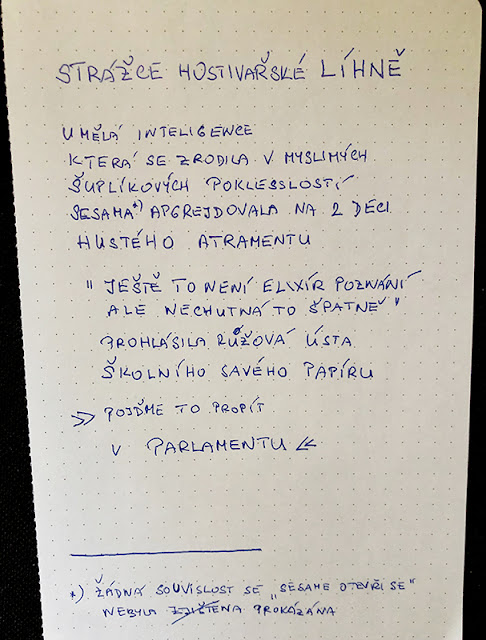 STRÁŽCE HOSTIVAŘSKÉ LÍHNĚ
UMĚLÁ INTELIGENCE
KTERÁ SE ZRODILA V MYSLIMÝCH
ŠUPLÍKOVÝCH POKLESSLOSTÍ
SESAMA*) APGREJDOVALA NA 2 DECI
HUSTÉHO ATRAMENTU
"JEŠTĚ TO NENÍ ELIXÍR POZNÁNÍ
ALE NECHUTNÁ TO ŠPATNĚ"
PROHLÁSILA RŮŽOVÁ ÚSTA
ŠKOLNÍHO SAVÉHO PAPÍRU
>> POJĎME TO PROPÍT
V PARLAMENTU <<
*) ŽÁDNÁ SOUVISLOST SE „SESAME OTEVŘI SE"
NEBYLA ZJIŠTĚNA PROKÁZÁNA